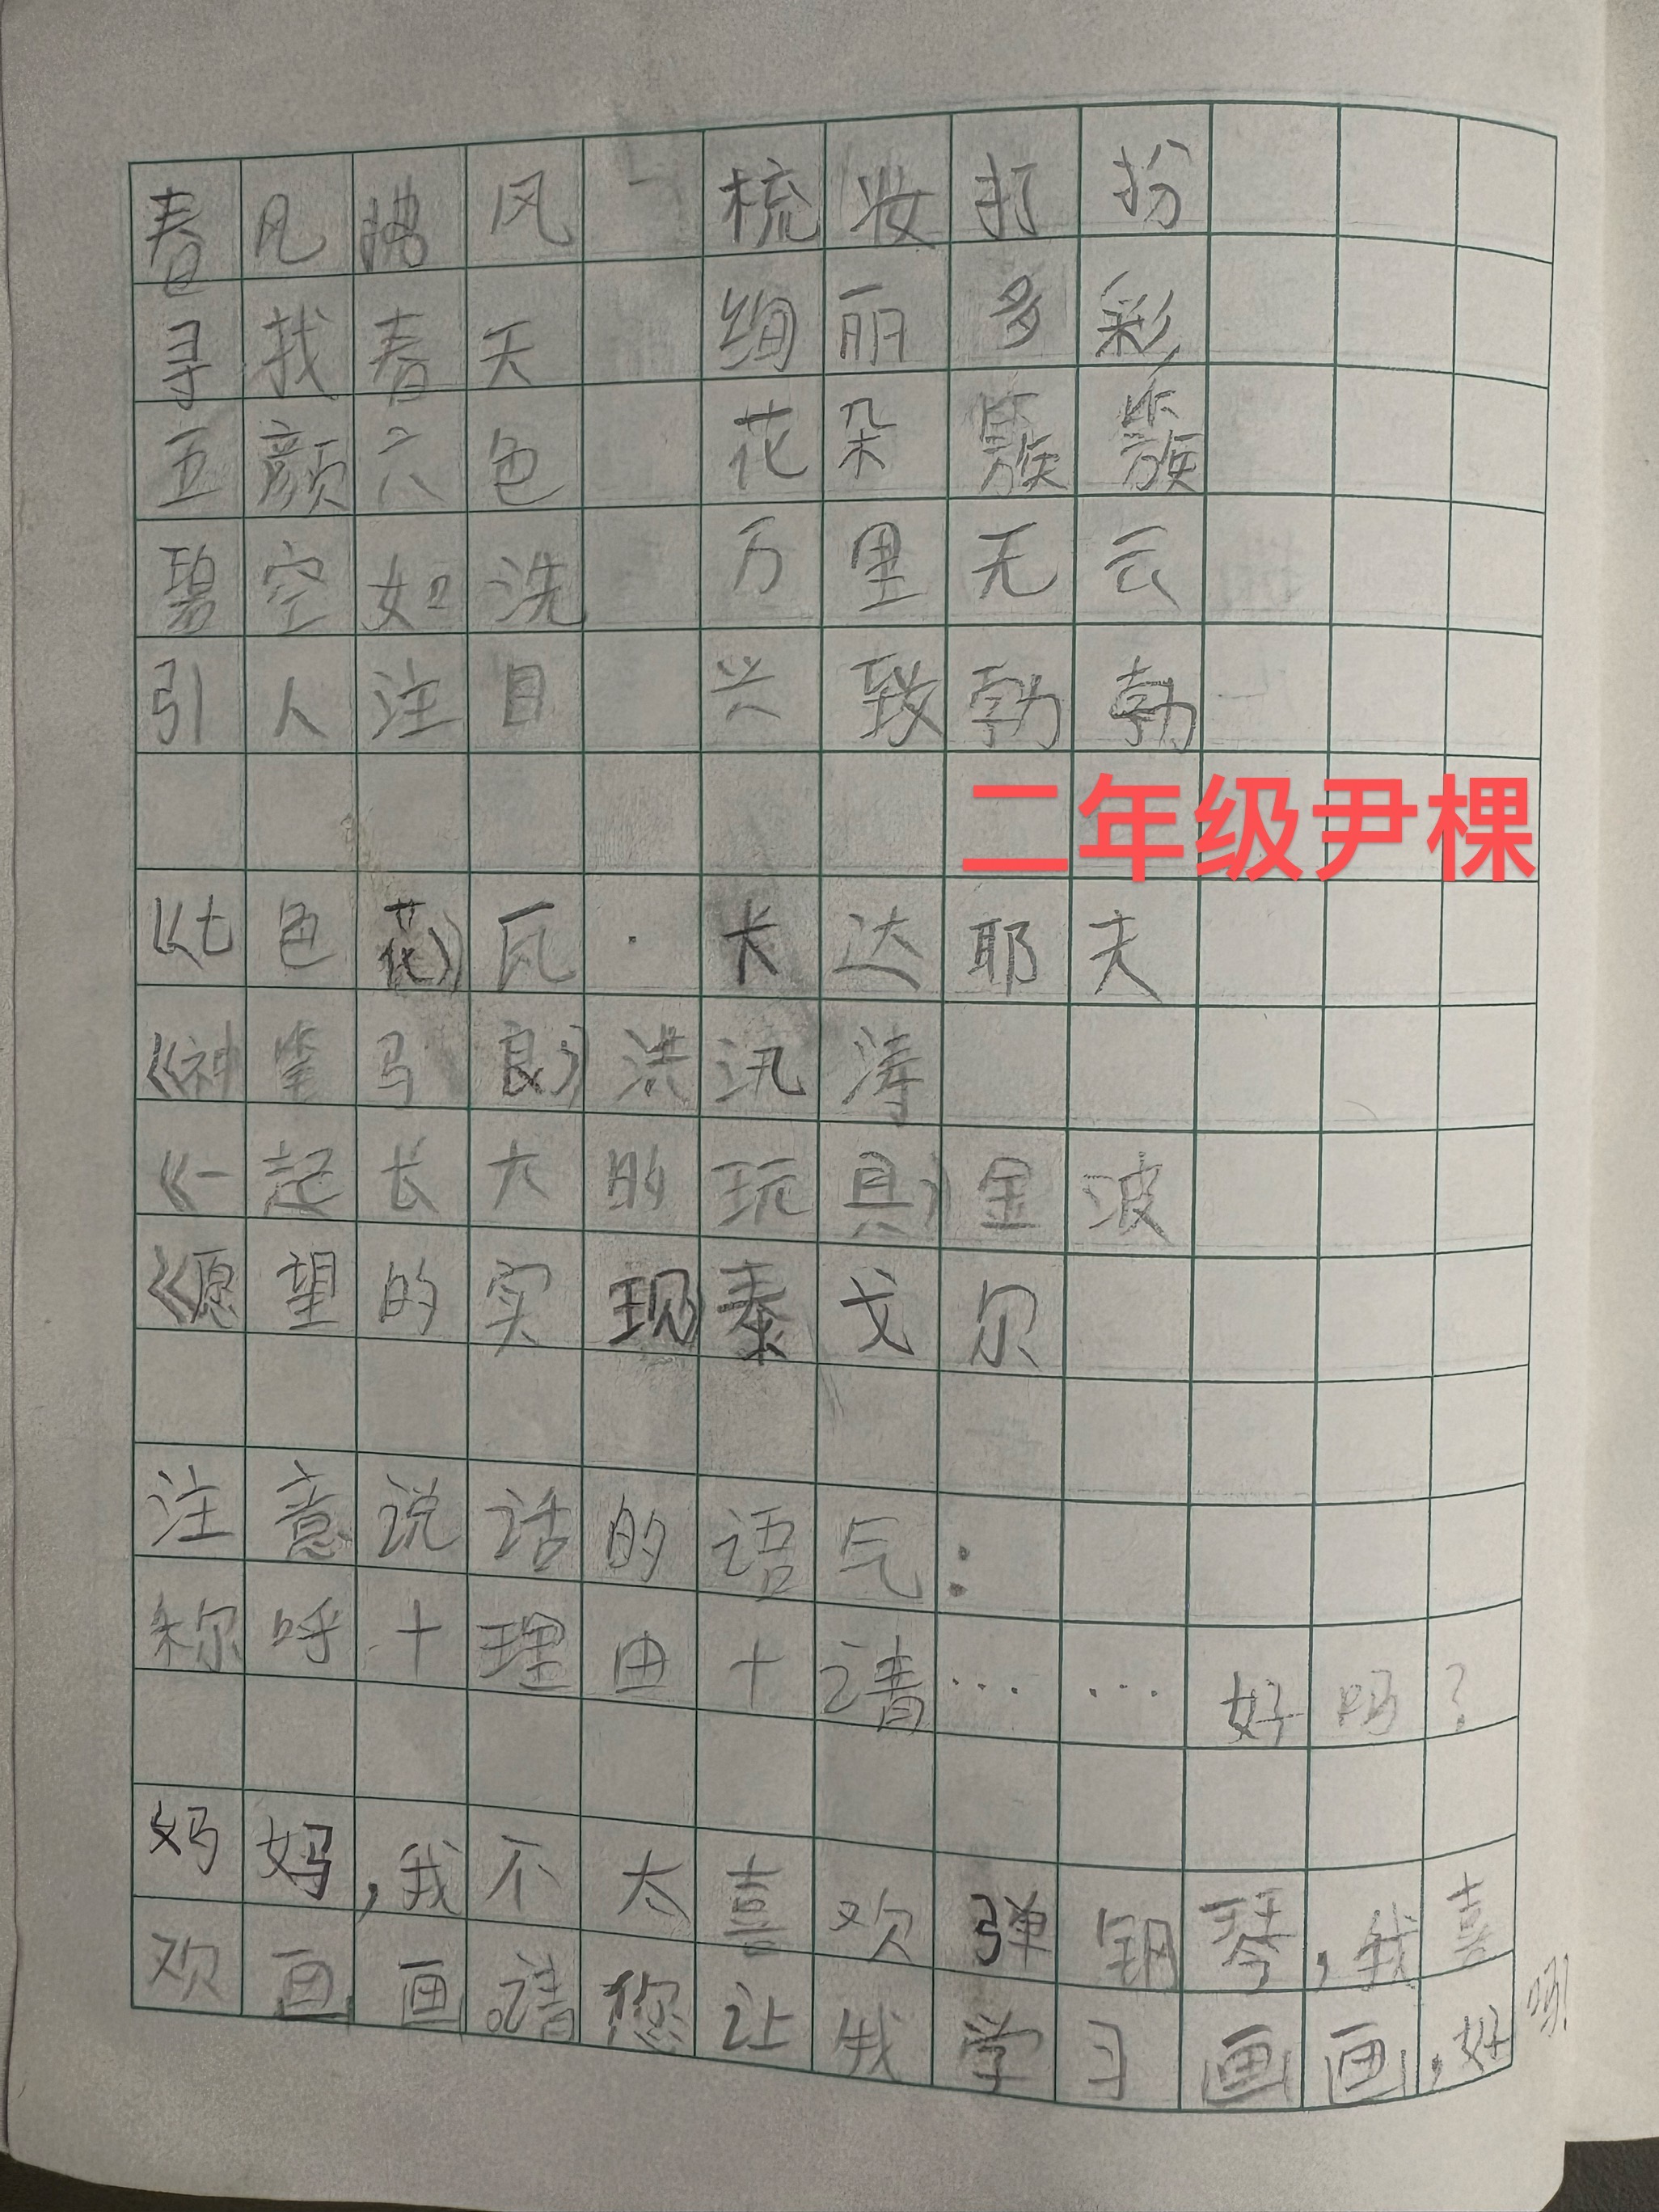 春风拂风 梳妆打扮
寻找春天 绚丽多彩
五颜六色 花朵簇簇
碧空如洗 万里无云
引人注目 兴致勃勃
二年级尹棵
《七色花》瓦·卡达耶夫
《神笔马良》洪汛涛
《一起长大的玩具》金波
《愿望的实现》泰戈尔
注意说话的语气：
称呼+理由+请……好吗？
妈妈，我不太喜欢弹钢琴，我喜
欢画画。请您让我学习画画，好吗！